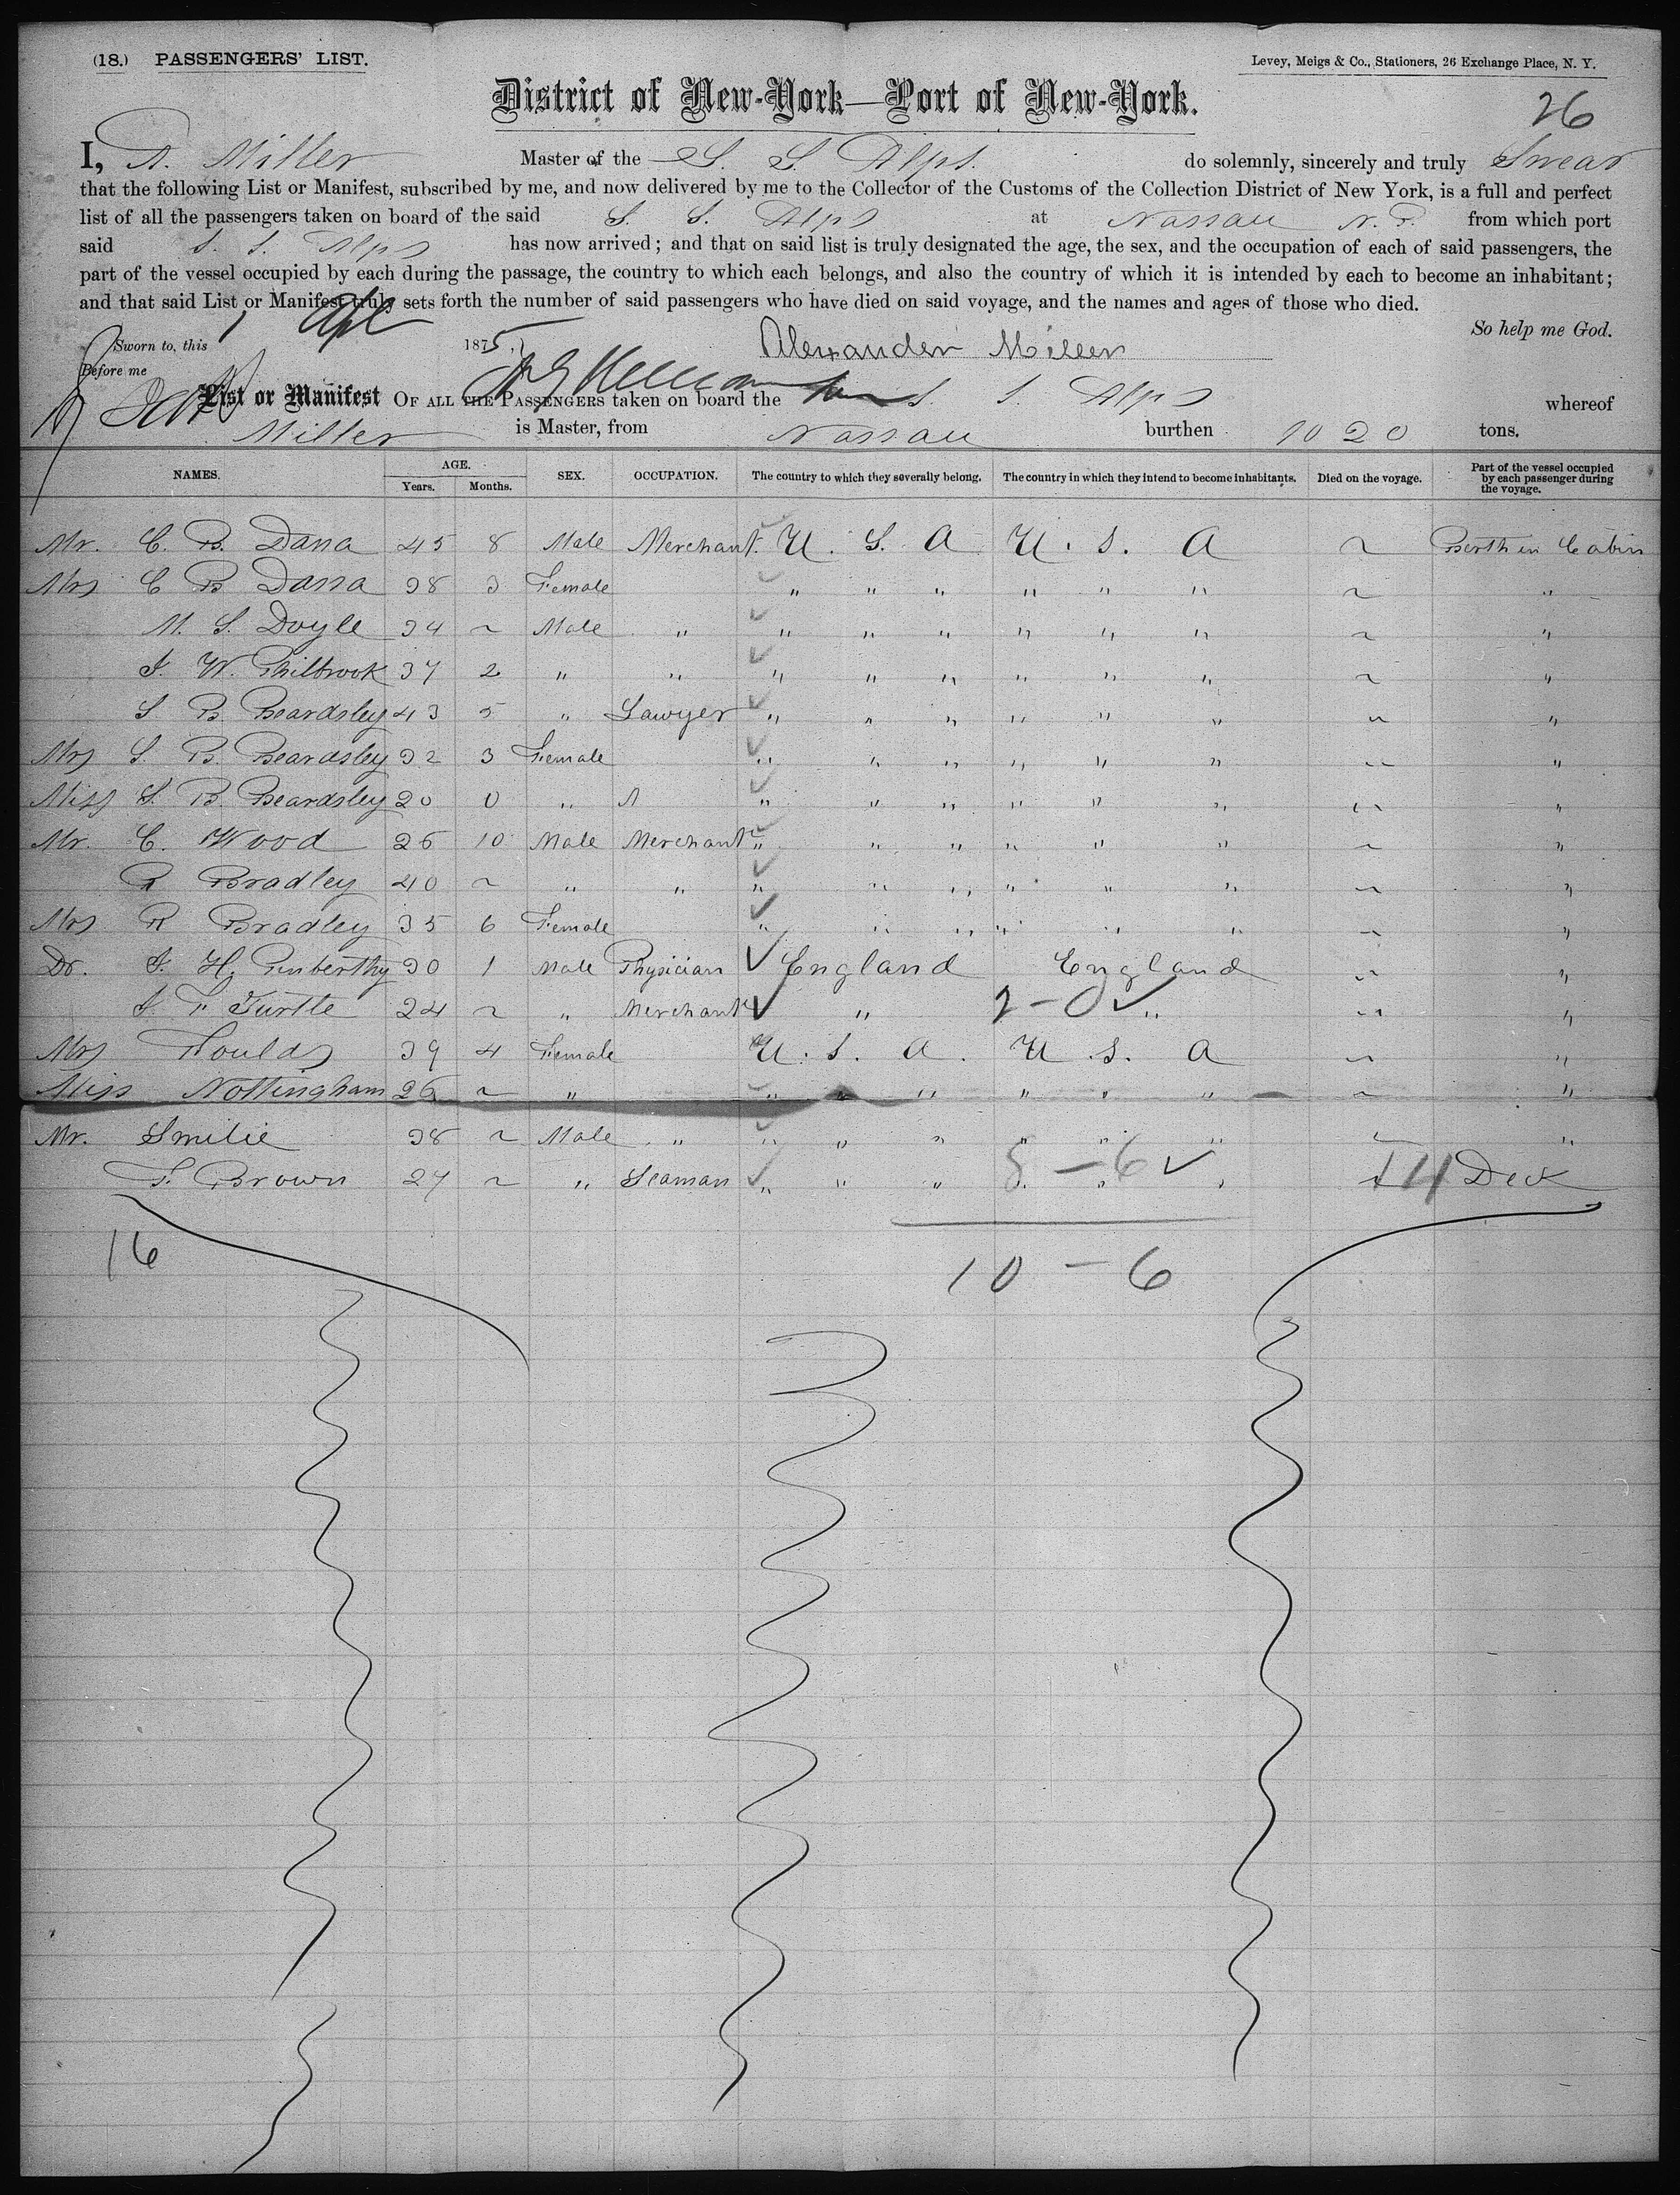 (18.) PASSENGERS' LIST. Levey, Meigs & Co., Stationers, 26 Exchange Place, N. Y.
District of New-York—Port of New-York.
26
I, A. Miller Master of the S. S. Alps. do solemnly, sincerely and truly Swear
that the following List or Manifest, subscribed by me, and now delivered by me to the Collector of the Customs of the Collection District of New York, is a full and perfect
list of all the passengers taken on board of the said S. S. Alps at Nassau N. P. from which port
said S. S. Alps has now arrived; and that on said list is truly designated the age, the sex, and the occupation of each of said passengers, the
part of the vessel occupied by each during the passage, the country to which each belongs, and also the country of which it is intended by each to become an inhabitant;
and that said List or Manifest truly sets forth the number of said passengers who have died on said voyage, and the names and ages of those who died.
So help me God.
Sworn to, this 1 Apl 1875, Alexander Miller
Before me
List or Manifest OF ALL THE PASSENGERS taken on board the S. S. Alps whereof
Miller is Master, from Nassau burthen 1020 tons.
NAMES. AGE. Years. Months. SEX. OCCUPATION. The country to which they severally belong. The country in which they intend to become inhabitants. Died on the voyage. Part of the vessel occupied by each passenger during the voyage.
Mr. C. B. Dana 45 8 Male Merchant. U. S. A U. S. A ~ Berth in Cabin
Mrs C B Dana 38 3 Female " " " " " " ~ "
M. S. Doyle 34 ~ Male " " " " " " " ~ "
J. W. Philbrook 37 2 " " " " " " " " ~ "
S B Beardsley 43 5 " Lawyer " " " " " " ~ "
Mrs S. B. Beardsley 32 3 Female " " " " " " ~ "
Miss S. B Beardsley 20 0 " " " " " " " ~ "
Mr. C. Wood 26 10 Male Merchant " " " " " " ~ "
R Bradley 40 ~ " " " " " " " " ~ "
Mrs R Bradley 35 6 Female " " " " " " ~ "
Dr. J. H. Penberthy 30 1 Male Physician ✓ England England ~ "
J. F. Turtle 24 ~ " Merchant ✓ " 2-0 ✓ " ~ "
Mrs Foulds 39 4 Female U. S. A. U. S. A ~ "
Miss Nottingham 26 ~ " " " " " " " ~ "
Mr. Smilie 38 ~ Male " " " " " " " ~ "
F. Brown 27 ~ " Seaman " " " 8-6 ✓ " " " Deck
16
10-6